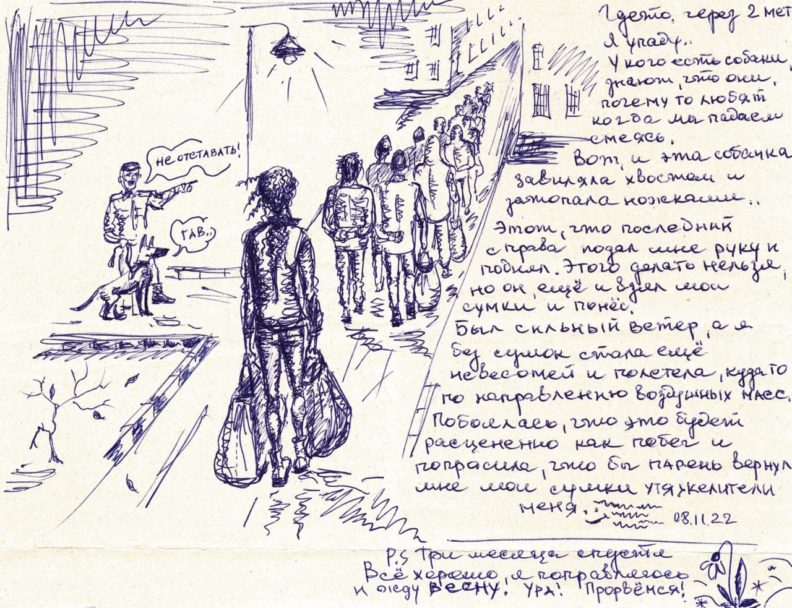 НЕ ОТСТАВАТЬ!
ГАВ..
Где-то, через 2 мет
Я упаду..
У кого есть собаки,
знают, что они,
почему то любят
когда мы падаем
смеясь.
Вот, и эта собачка
завиляла хвостом и
затопала ножками..
Этот, что последний
справа подал мне руку и
поднял. Этого делать нельзя,
но он, ещё и взял мои
сумки и понёс.
Был сильный ветер, а я
без сумок стала ещё
невесомей и полетела, куда то
по направлению воздушных масс.
Побоялась, что это будет
расцененно как побег и
попросила, что бы парень вернул
мне мои сумки утяжелители
меня.
08.11.22
P.S Три месяца спустя
Всё хорошо, я поправляюсь
и жду ВЕСНУ! Ура! Прорвёмся!